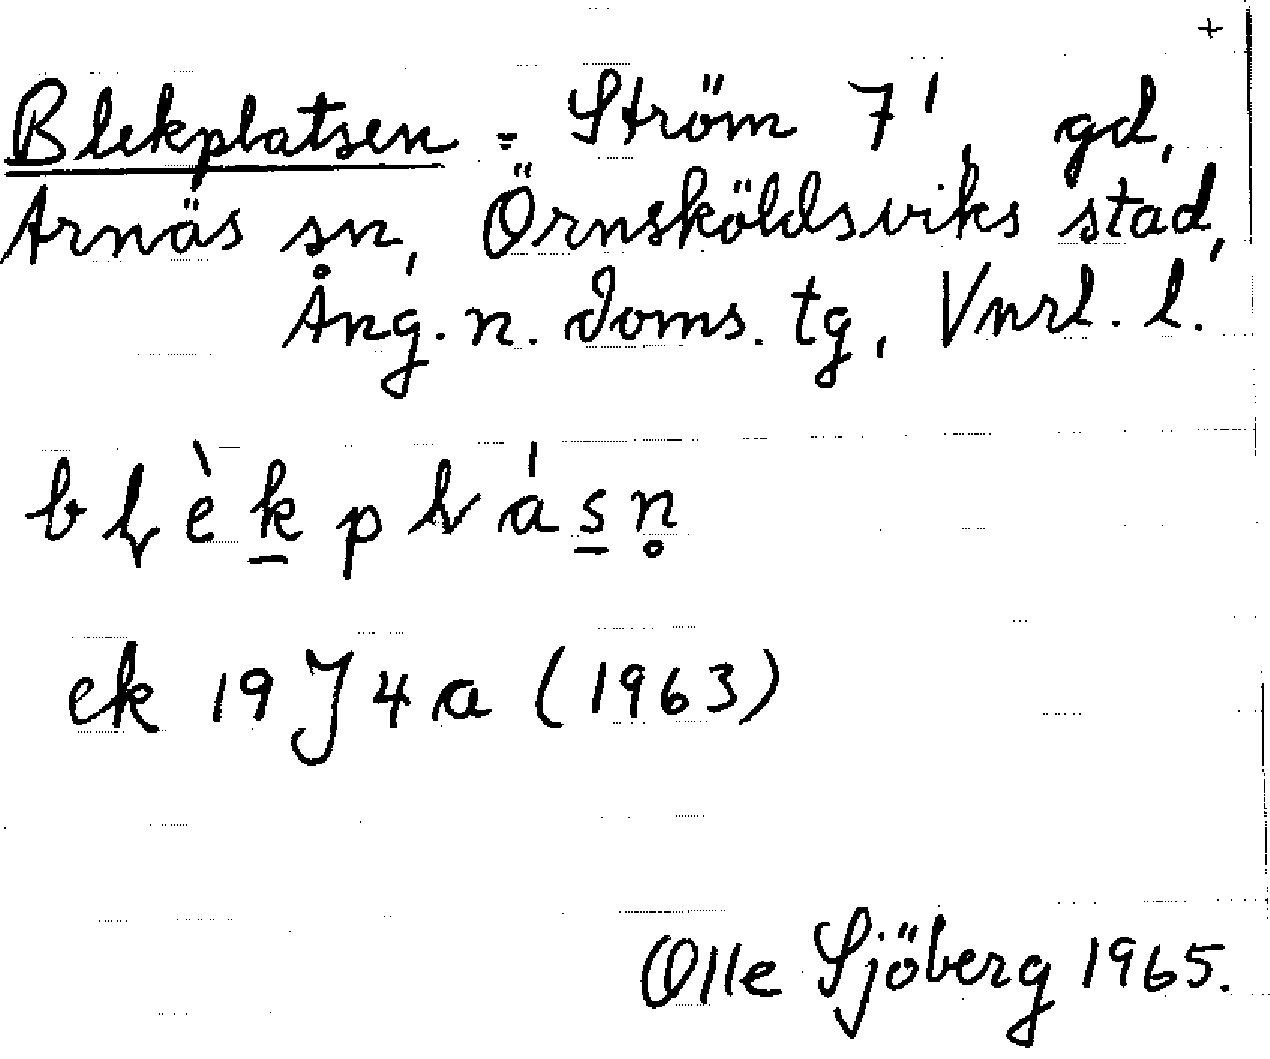 +
Blekplatsen = Ström 7¹, gd,
Arnäs sn, Örnsköldsviks stad,
Ång. n. doms. tg, Vnrl. l.
blèkplásn̥
ek 19 J 4 a (1963)
Olle Sjöberg 1965.